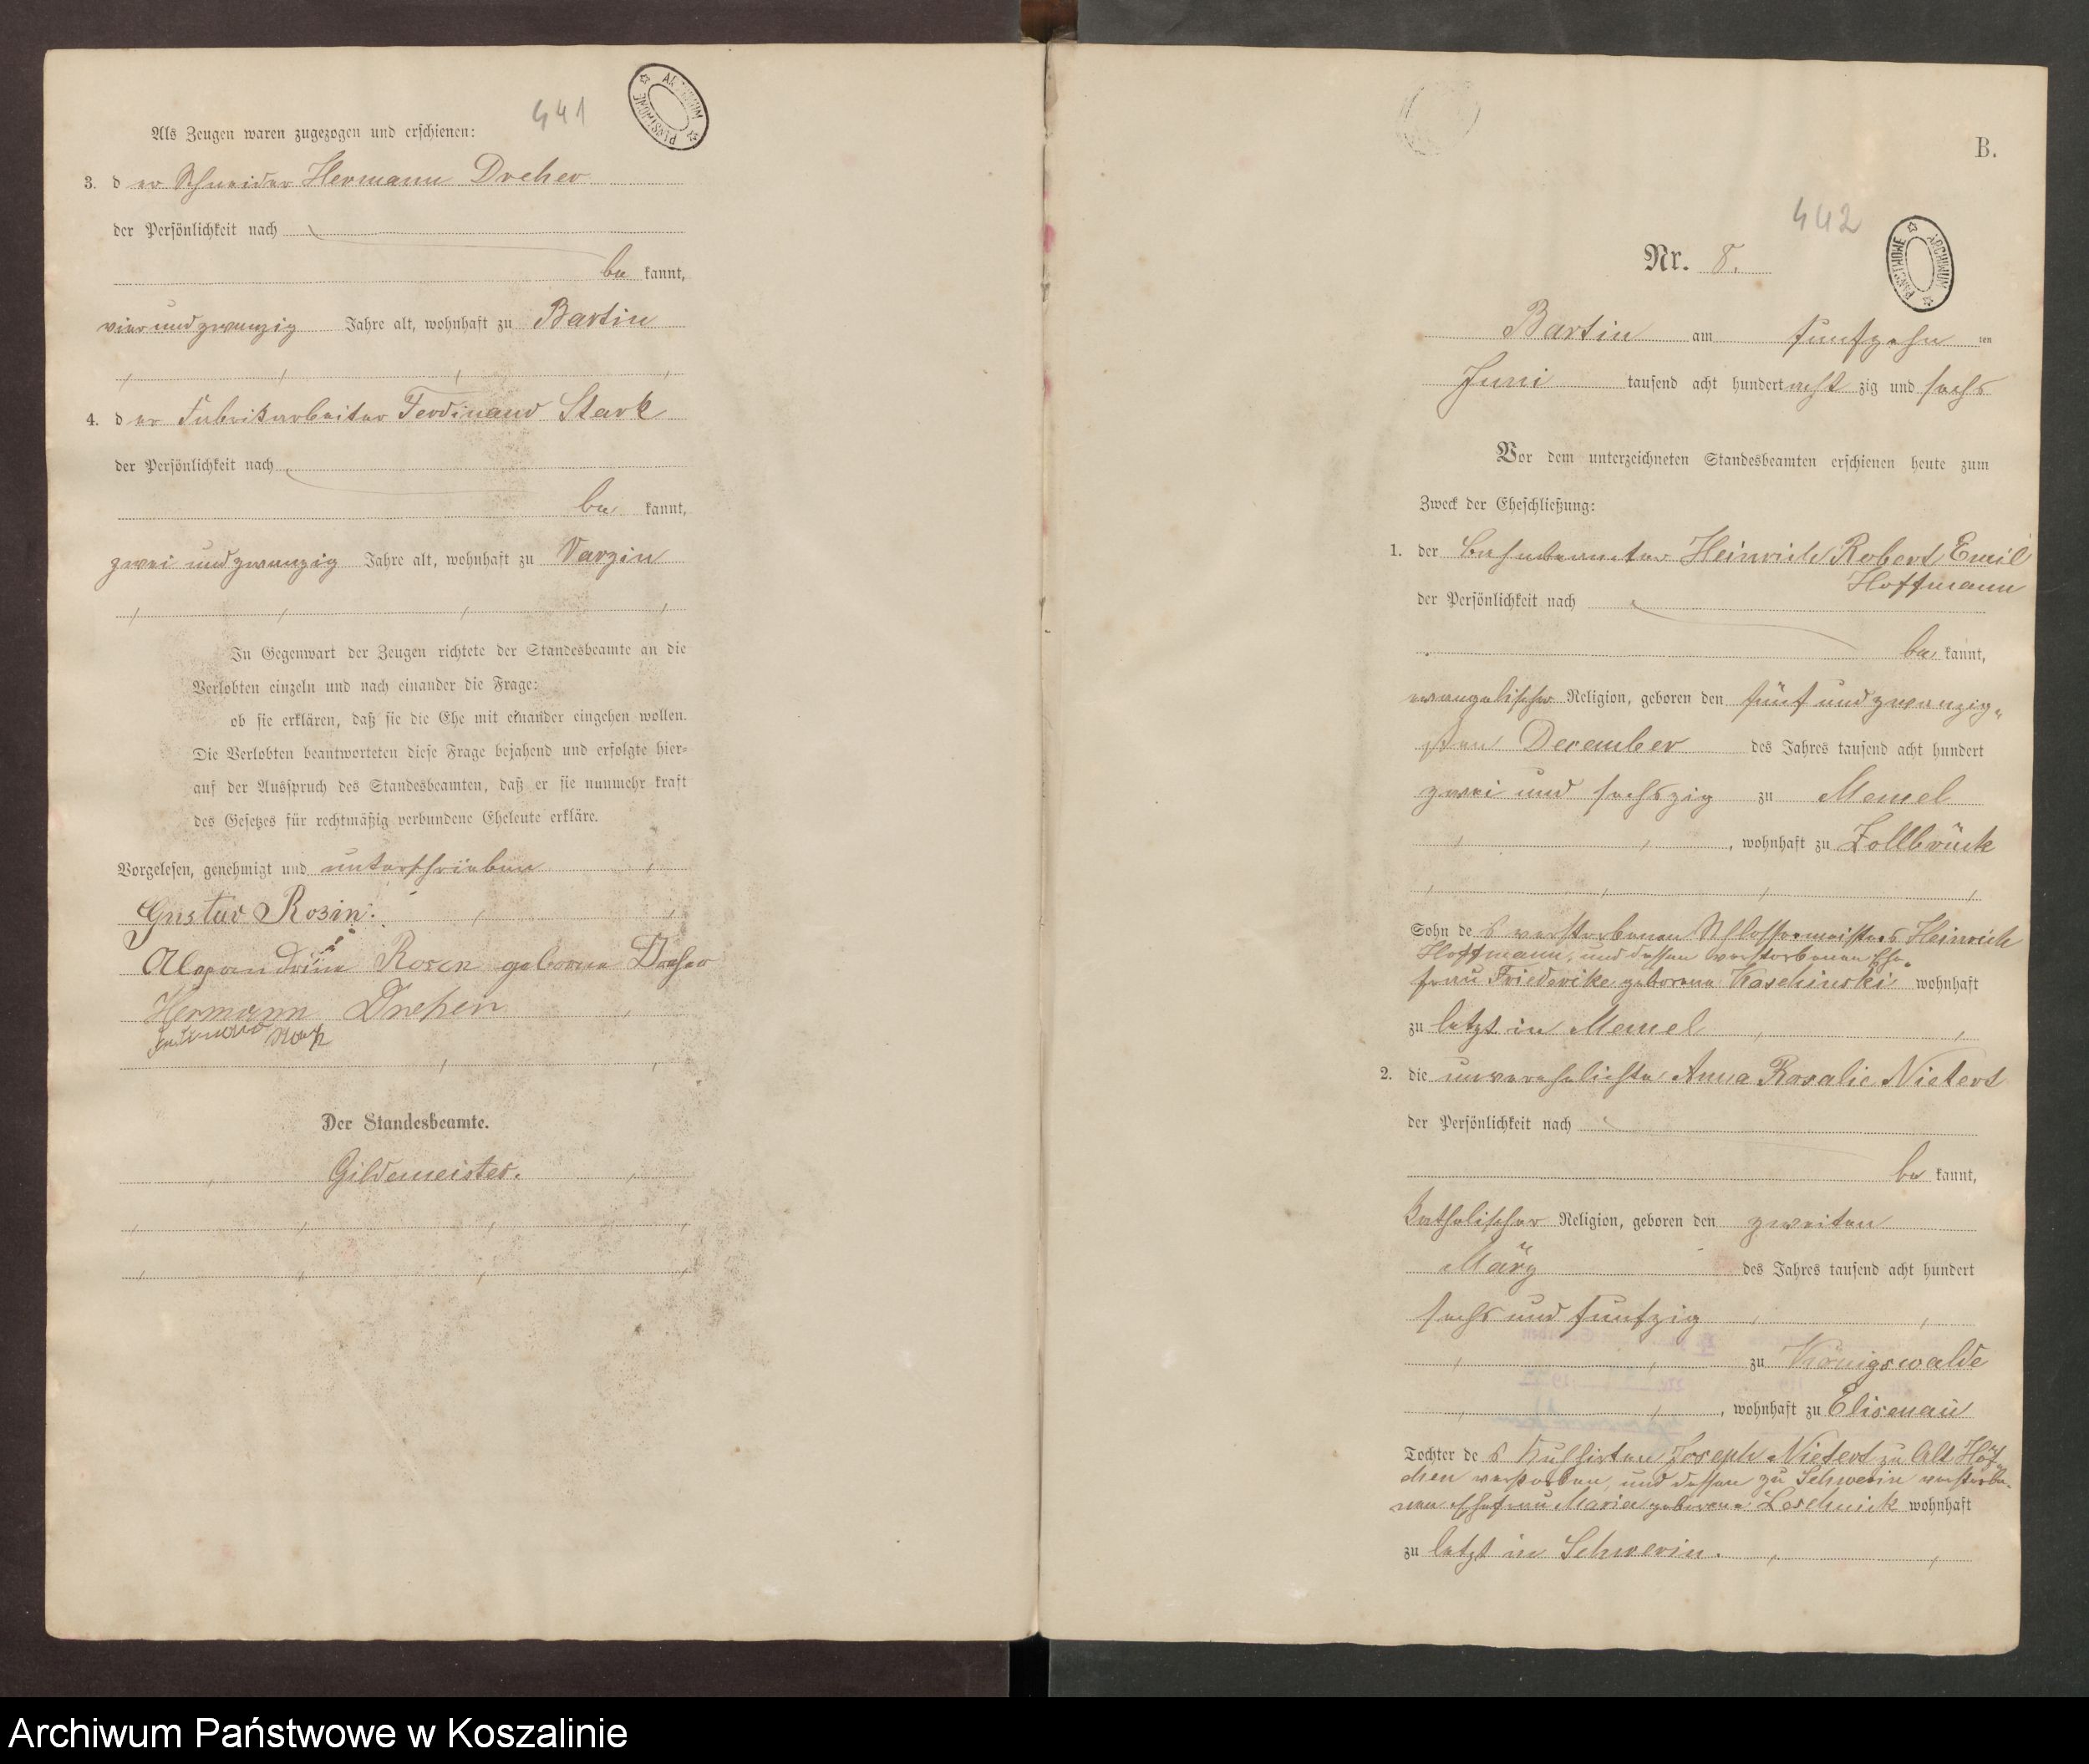 441
ARCHIWUM PAŃSTWOWE
Als Zeugen waren zugezogen und erschienen:
3. der Schneider Hermann Dreher
der Persönlichkeit nach
bekannt,
vierundzwanzig Jahre alt, wohnhaft zu Bartin
4. der Fabrikarbeiter Ferdinand Stark
der Persönlichkeit nach
bekannt,
zwei und zwanzig Jahre alt, wohnhaft zu Varzin
In Gegenwart der Zeugen richtete der Standesbeamte an die
Verlobten einzeln und nach einander die Frage:
ob sie erklären, daß sie die Ehe mit einander eingehen wollen.
Die Verlobten beantworteten diese Frage bejahend und erfolgte hier-
auf der Ausspruch des Standesbeamten, daß er sie nunmehr kraft
des Gesetzes für rechtmäßig verbundene Eheleute erkläre.
Vorgelesen, genehmigt und unterschrieben
Gustav Rosin.
Alexandrine Rosen geborne Dreher
Hermann Dreher
Ferdinand Stark
Der Standesbeamte.
Gildemeister.
B.
442
ARCHIWUM PAŃSTWOWE
Nr. 8.
Bartin am fünfzehn ten
Juni tausend acht hundert acht zig und sechs
Vor dem unterzeichneten Standesbeamten erschienen heute zum
Zweck der Eheschließung:
1. der Bahnbeamter Heinrich Robert Emil
Hoffmann
der Persönlichkeit nach
bekannt,
evangelischer Religion, geboren den fünf und zwanzig-
sten December des Jahres tausend acht hundert
zwei und sechszig zu Memel
, wohnhaft zu Zollbrück
Sohn des verstorbenen Schlossermeisters Heinrich
Hoffmann, und dessen verstorbenen Ehe-
frau Friederike geborene Kaschinski wohnhaft
zu letzt in Memel
2. die unverehelichte Anna Rosalie Nietert
der Persönlichkeit nach
bekannt,
katholischer Religion, geboren den zweiten
März des Jahres tausend acht hundert
sechs und fünfzig
zu Königswalde
, wohnhaft zu Elisenau
Tochter des Joseph Nietert zu Alt Höf-
chen verstorben, und dessen zu Schwerin verstorbe-
nen Ehefrau Maria geborene Leschnick wohnhaft
zu letzt in Schwerin.
Archiwum Państwowe w Koszalinie